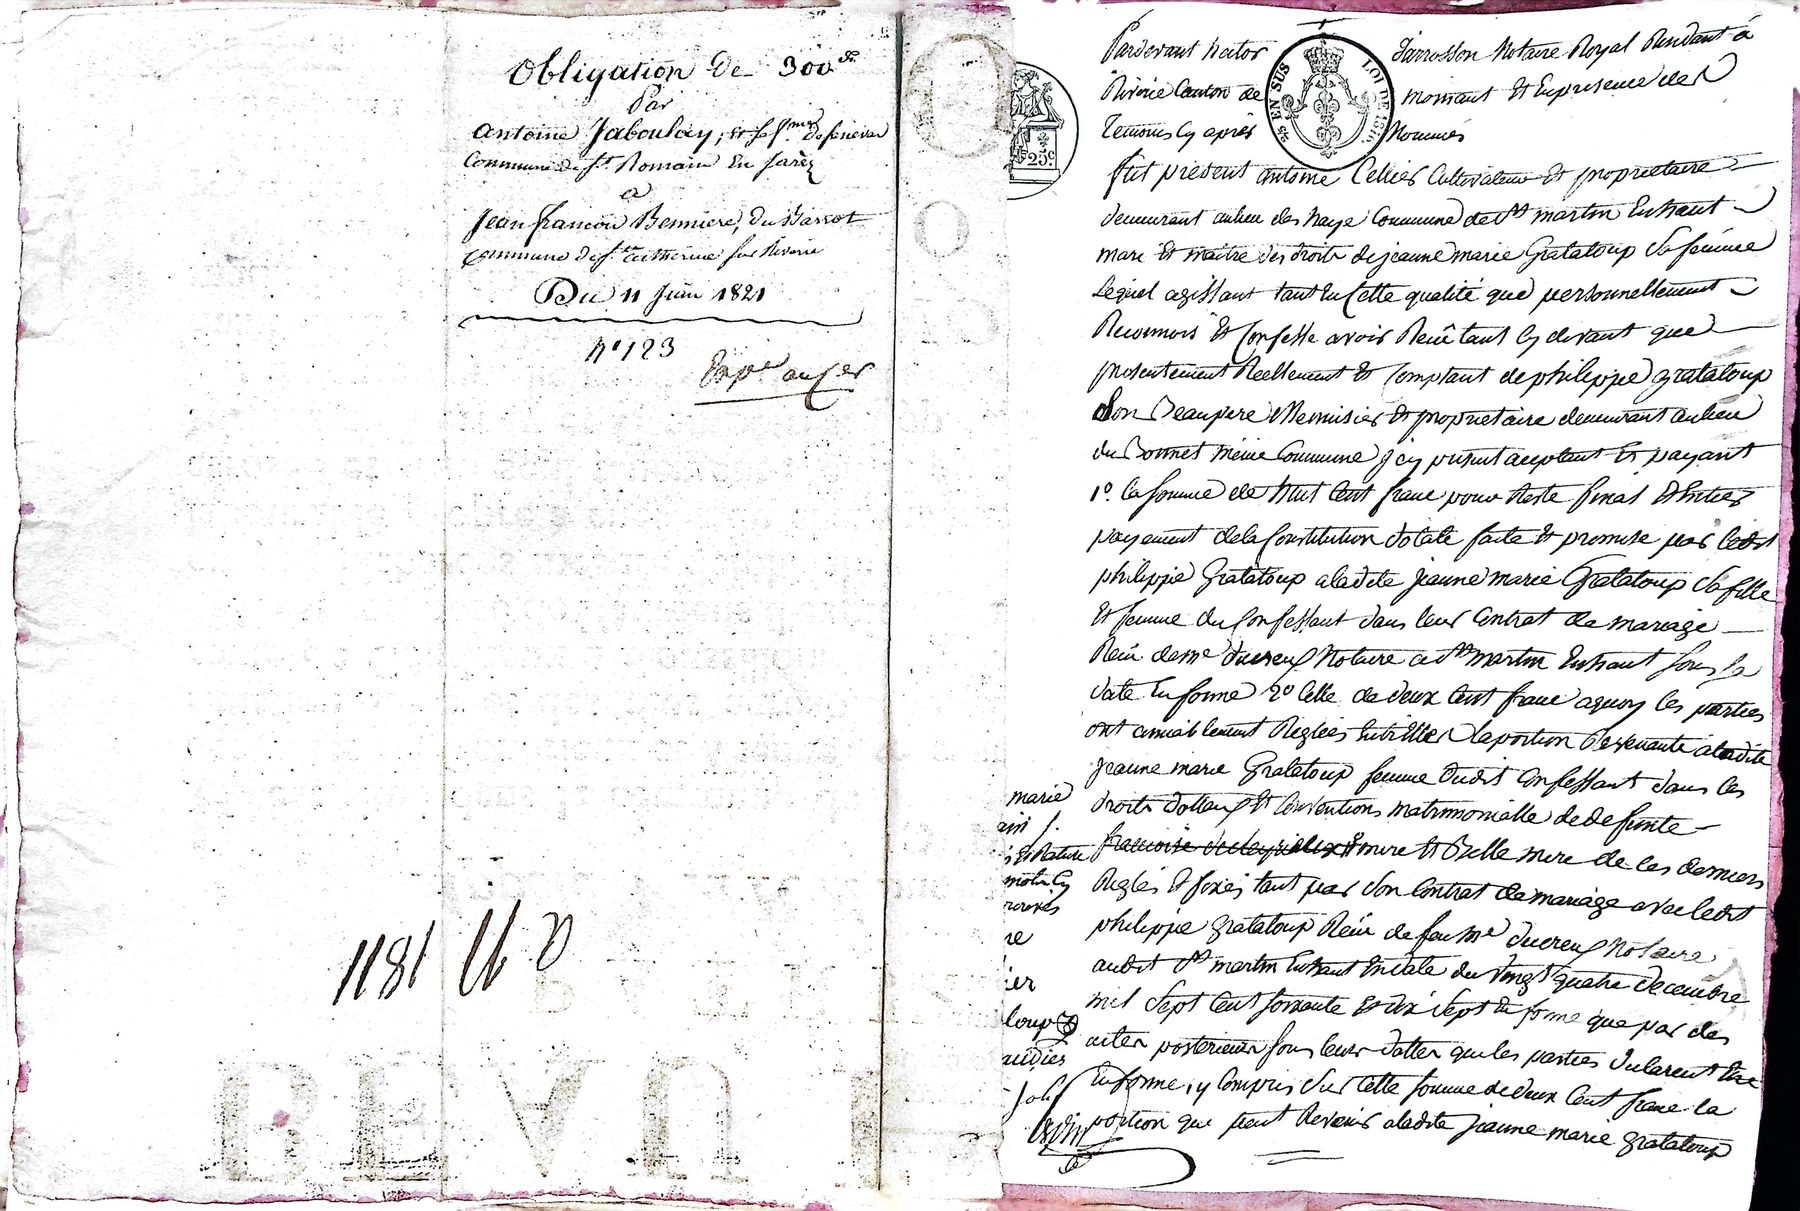 Obligation de 300 fr
Par
Antoine Jaboulay, et sa fme de senevar
Commune de St Romain En Jarèz
a
Jean françois Bennière, du Barrot
commune de ste catherine sur Riverie
Du 11 Juin 1821
n° 123
Expe au Cer
1181
BEAU
25c
EN SUS
LOI DE 1816
Pardevant hector Jarrosson Notaire Royal Résidant à
Riverie Canton de mornant Et En présence des
Temoins Cy après Nommés
fut présent antoine Cellier Cultivateur Et propriétaire
demeurant au lieu des haye Commune de St martin En haut
mari Et maitre des droits de jeanne marie Grataloup Sa femme
Lequel agissant tant En Cette qualité que personnellement
Reconnois Et Confesse avoir Reçû tant Cy devant que
présentement Réellement Et Comptant de philippe grataloup
Son Beaupere Menuisier Et propriétaire demeurant au lieu
du Bonnet même Commune Jcy présent acceptant Et payant
1° la somme de huit Cent franc pour Reste final Et Entier
payement de la Constitution dotale faite Et promise par ledit
philippe Grataloup a ladite jeanne marie Grataloup Sa fille
Et femme du Confessant dans leur Contrat de mariage
Reçu de me ducreux Notaire a St martin En haut sous sa
date En forme 2° Celle de deux Cent franc a quoy les parties
ont amiablement Reglées Entr'Elles la portion Revenante a ladite
jeanne marie Grataloup femme dudit Confessant dans les
droits dottaux Et Conventions matrimonialle de defunte
mere Et Belle mere de Ces derniers
Reglés Et fixés tant par Son Contrat de mariage avec ledit
philippe grataloup Reçu de feu Me ducreux Notaire
audit St martin En haut En date du vingt quatre decembre
mil Sept Cent soixante Et dix Sept En forme que par des
actes posterieurs sous leurs dattes que les parties declarent Etre
En forme, y Compris Sur Cette somme de deux Cent franc la
portion que peut Revenir a ladite jeanne marie grataloup
marie
loup